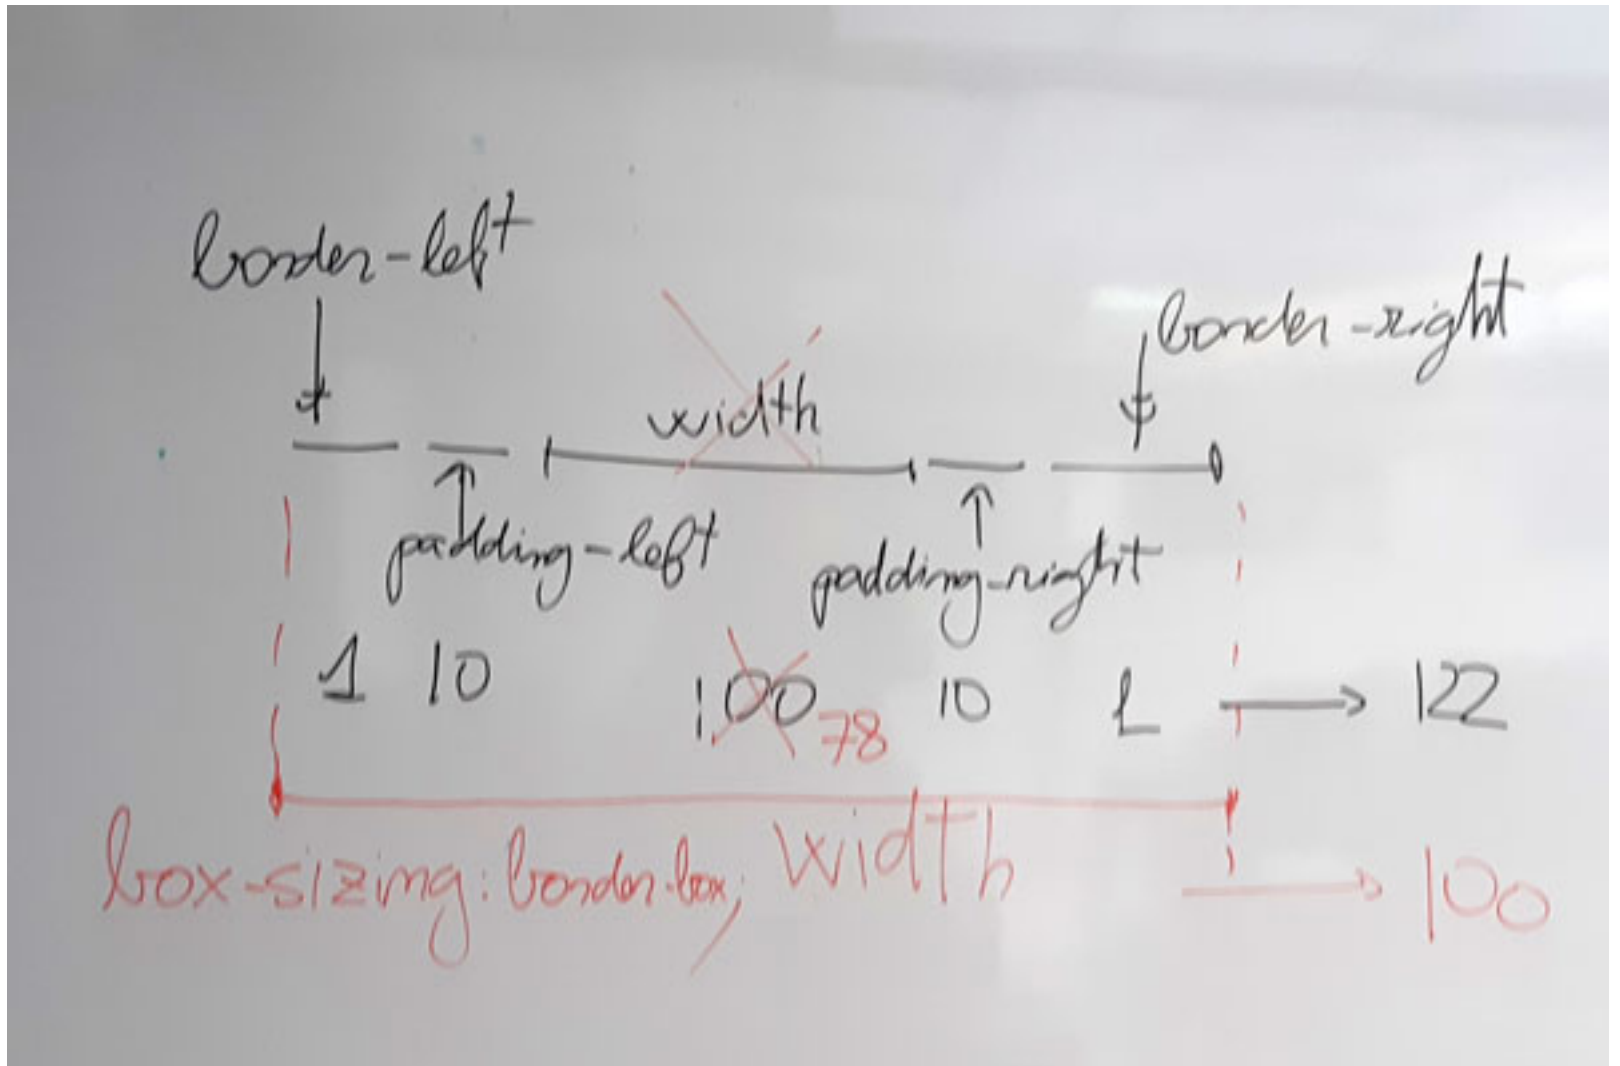 border-left
border-right
width
padding-left
padding-right
1 10 100 78 10 1 → 122
box-sizing: border-box; width → 100